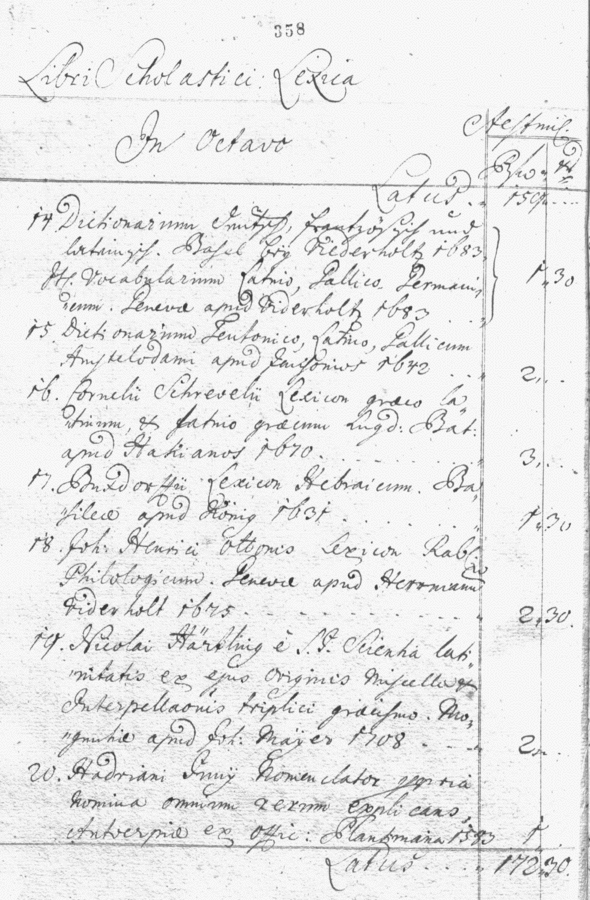 358
Libri Scholastici: Lexica
In Octavo
Aestmis.
Rtho xr
Latus . . 159. . . .
14 Dictionarium deutsch, französisch und
lateinisch. Basel bey Widerholtz 1683.
It. Vocabularium Latino, Gallico Germani
cum. Genevæ apud Widerholtz 1683 . . . 1. 30
15. Dictionarium Teutonico, Latino, Gallicum
Amstelodami apud Jansonios 1642 . . . 2. . .
16. Cornelii Schrevelii Lexicon græco la
tinum, & latino græcum Lugd: Bat:
apud Hakianos 1670. . . . . . 3. . .
17. Buxdorffii Lexicon Hebraicum. Ba
sileæ apud König 1631 . . . . . 1. 30
18. Joh: Henrici Ottonis Lexicon Rab:
Philologicum. Genevæ apud Herrmann
Widerholt 1675 . . . . . . 2. 30.
19. Nicolai Härtling è S. J. Scientia lati
nitatis ex ejus originis Miscella &
Interpellationis triplici græcismo. Mo
guntiæ apud Joh: Mayer 1708 . . . 2. . .
20. Hadriani Junij Nomenclator
nomina omnium rerum explicans,
Antverpiæ ex offic: Plantiniana 1583 1.
Latus . . . 172. 30.